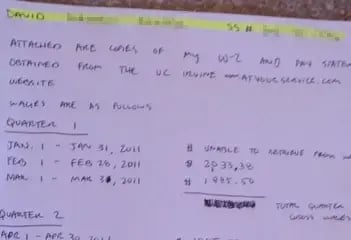 DAVID SS#
ATTACHED ARE COPIES OF MY W-2 AND PAY STATEM
OBTAINED FROM THE UC IRVINE ATYOURSERVICE.COM
WEBSITE
WAGES ARE AS FOLLOWS
QUARTER 1
JAN. 1 - JAN 31, 2011 $ UNABLE TO RETRIEVE FROM W
FEB 1 - FEB 28, 2011 $ 2033,38
MAR 1 - MAR 31, 2011 $ 1885.50
TOTAL QUARTER
GROSS WAGES
QUARTER 2
APR 1 - APR 30 2011